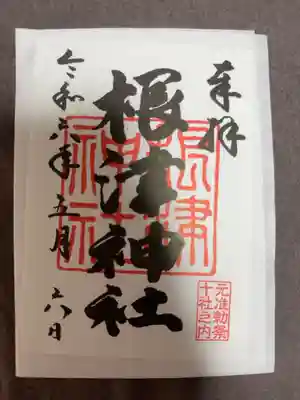 奉拝
根津神社
根津
神社
元准勅祭
十社之内
令和六年五月六日